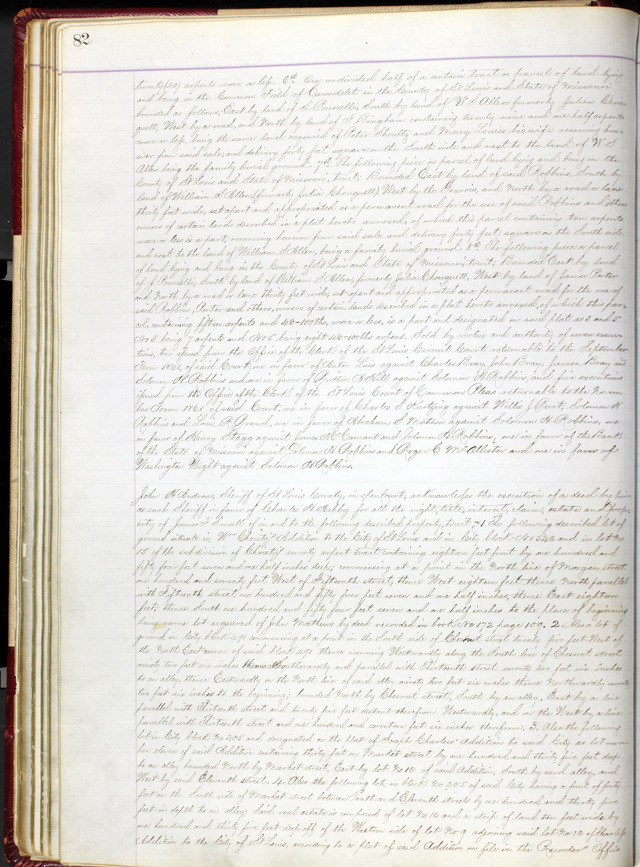 82
twenty (20) arpents more or less. 6th One undivided half of a certain tract or parcel of land lying
and being in the Common Field of Carondelet in the County of St Louis and State of Missouri
bounded as follows, East by land of J Powells, South by land of W S Allen formerly Julien Chou
quett, West by a road, and North by land of Bingham containing twenty nine and one half arpents
more or less being the same land acquired of Peter and Mary Louise his wife reserving how
ever from said sale and delivery forty feet square on the South side and next to the land of W S
Allen being the family burial ground. 7th The following piece or parcel of land lying and being in the
County of St Louis and State of Missouri, towit; Bounded East by land of said Robbins, South by
land of William S Allen, (formerly Julia Chouquett) West by the Gravois, and North by a road or lane
thirty feet wide, set apart and appropriated as a permanent road for the use of said Robbins and others
owners of certain lands described in a plat hereto annexed, of which this parcel containing ten arpents
more or less is a part, reserving however from said sale and delivery forty feet square on the South side
and next to the land of William S Allen, being a family burial ground. 8th The following piece or parcel
of land lying and being in the County of St Louis and State of Missouri, towit; Bounded East by land
of J Powells, South by land of William S Allen, formerly Julia Chouquett, West by land of James Porter
and North by a road or lane thirty feet wide, set apart and appropriated as a permanent road for the use of
said Robbins, Porter and others, owners of certain lands described in a plat hereto annexed, of which this par
cel, containing fifteen arpents and 46-100ths, more or less, is a part and designated on said plat as 4 and 5
No 4 being 7 arpents and No 5 being eight 46-100ths arpens. Sold by virtue and authority of seven execu
tions, two issued from the Office of the Clerk of the St Louis Circuit Court returnable to the September
Term 1821, of said Court, one in favor of against Charles Bray, John Bray, James Bray and
Solomon H Robbins and one in favor of R Hill against Solomon H Robbins, and five executions
issued from the Office of the Clerk of the St Louis Court of Common Pleas returnable to the Novem
ber Term 1821 of said Court, one in favor of Charles S against Willis J Solomon H
Robbins and Louis P one in favor of Abraham S against Solomon H Robbins, one
in favor of Henry Stagg against James McCamant and Solomon H Robbins; one in favor of the Bank
of the State of Missouri against Solomon H Robbins and Roger C McAllister and one in favor of
Washington Wight against Solomon H Robbins.
John M Sheriff of St Louis County, in open Court, acknowledges the execution of a deed by him
as such Sheriff in favor of Charles H for all the right, title, interest, claim, estate and prop
erty of James Small of in and to the following described property, towit; 1 The following described lot of
ground situate in Wm Christy's Addition to the City of St Louis and in City block No and in lot No
15 of the subdivision of Christy's seventy arpent tract containing eighteen feet front by one hundred and
fifty four feet seven and one half inches deep; commencing at a point in the North line of Morgan street
one hundred and seventy feet West of Fifteenth street, thence West eighteen feet thence North parallel
with Fifteenth street one hundred and fifty four feet seven and one half inches, thence East eighteen
feet, thence South one hundred and fifty four feet seven and one half inches to the place of beginning
being same lot acquired of John Mathews by deed recorded in book No 172 page 109. 2. Also a lot of
ground in City block 491 commencing at a point in the South side of Chesnut street twenty five feet West of
the North East corner of said block 491 thence running Westwardly along the South line of Chesnut street
ninety two feet six inches thence Southwardly and parallel with Thirteenth street seventy two feet six inches
to an alley, thence Eastwardly on the North line of said alley ninety two feet six inches thence Northwardly seventy
two feet six inches to the beginning; bounded North by Chesnut street, South by an alley, East by a line
parallel with Thirteenth street and twenty five feet distant therefrom Westwardly, and on the West by a line
parallel with Thirteenth street and one hundred and seventeen feet six inches therefrom. 3. Also the following
lot in City block No 205 and designated on the plat of Joseph Charless' addition to said City as lot num
ber eleven of said Addition containing thirty feet on Market street by one hundred and thirty five feet deep
to an alley bounded North by Market street, East by lot No 10 of said Addition, South by said alley, and
West by said Eleventh street. 4. Also the following lot in block No 205 of said City having a front of forty
feet on the South side of Market street between Tenth and Eleventh streets by one hundred and thirty five
feet in depth to an alley. Said real estate is composed of lot No 10 and a strip of land ten feet wide by
one hundred and thirty five feet deep off of the Western side of lot No 9 adjoining said lot No 10 of Charless
Addition to the City of St Louis, according to a plat of said Addition on file in the Recorders Office